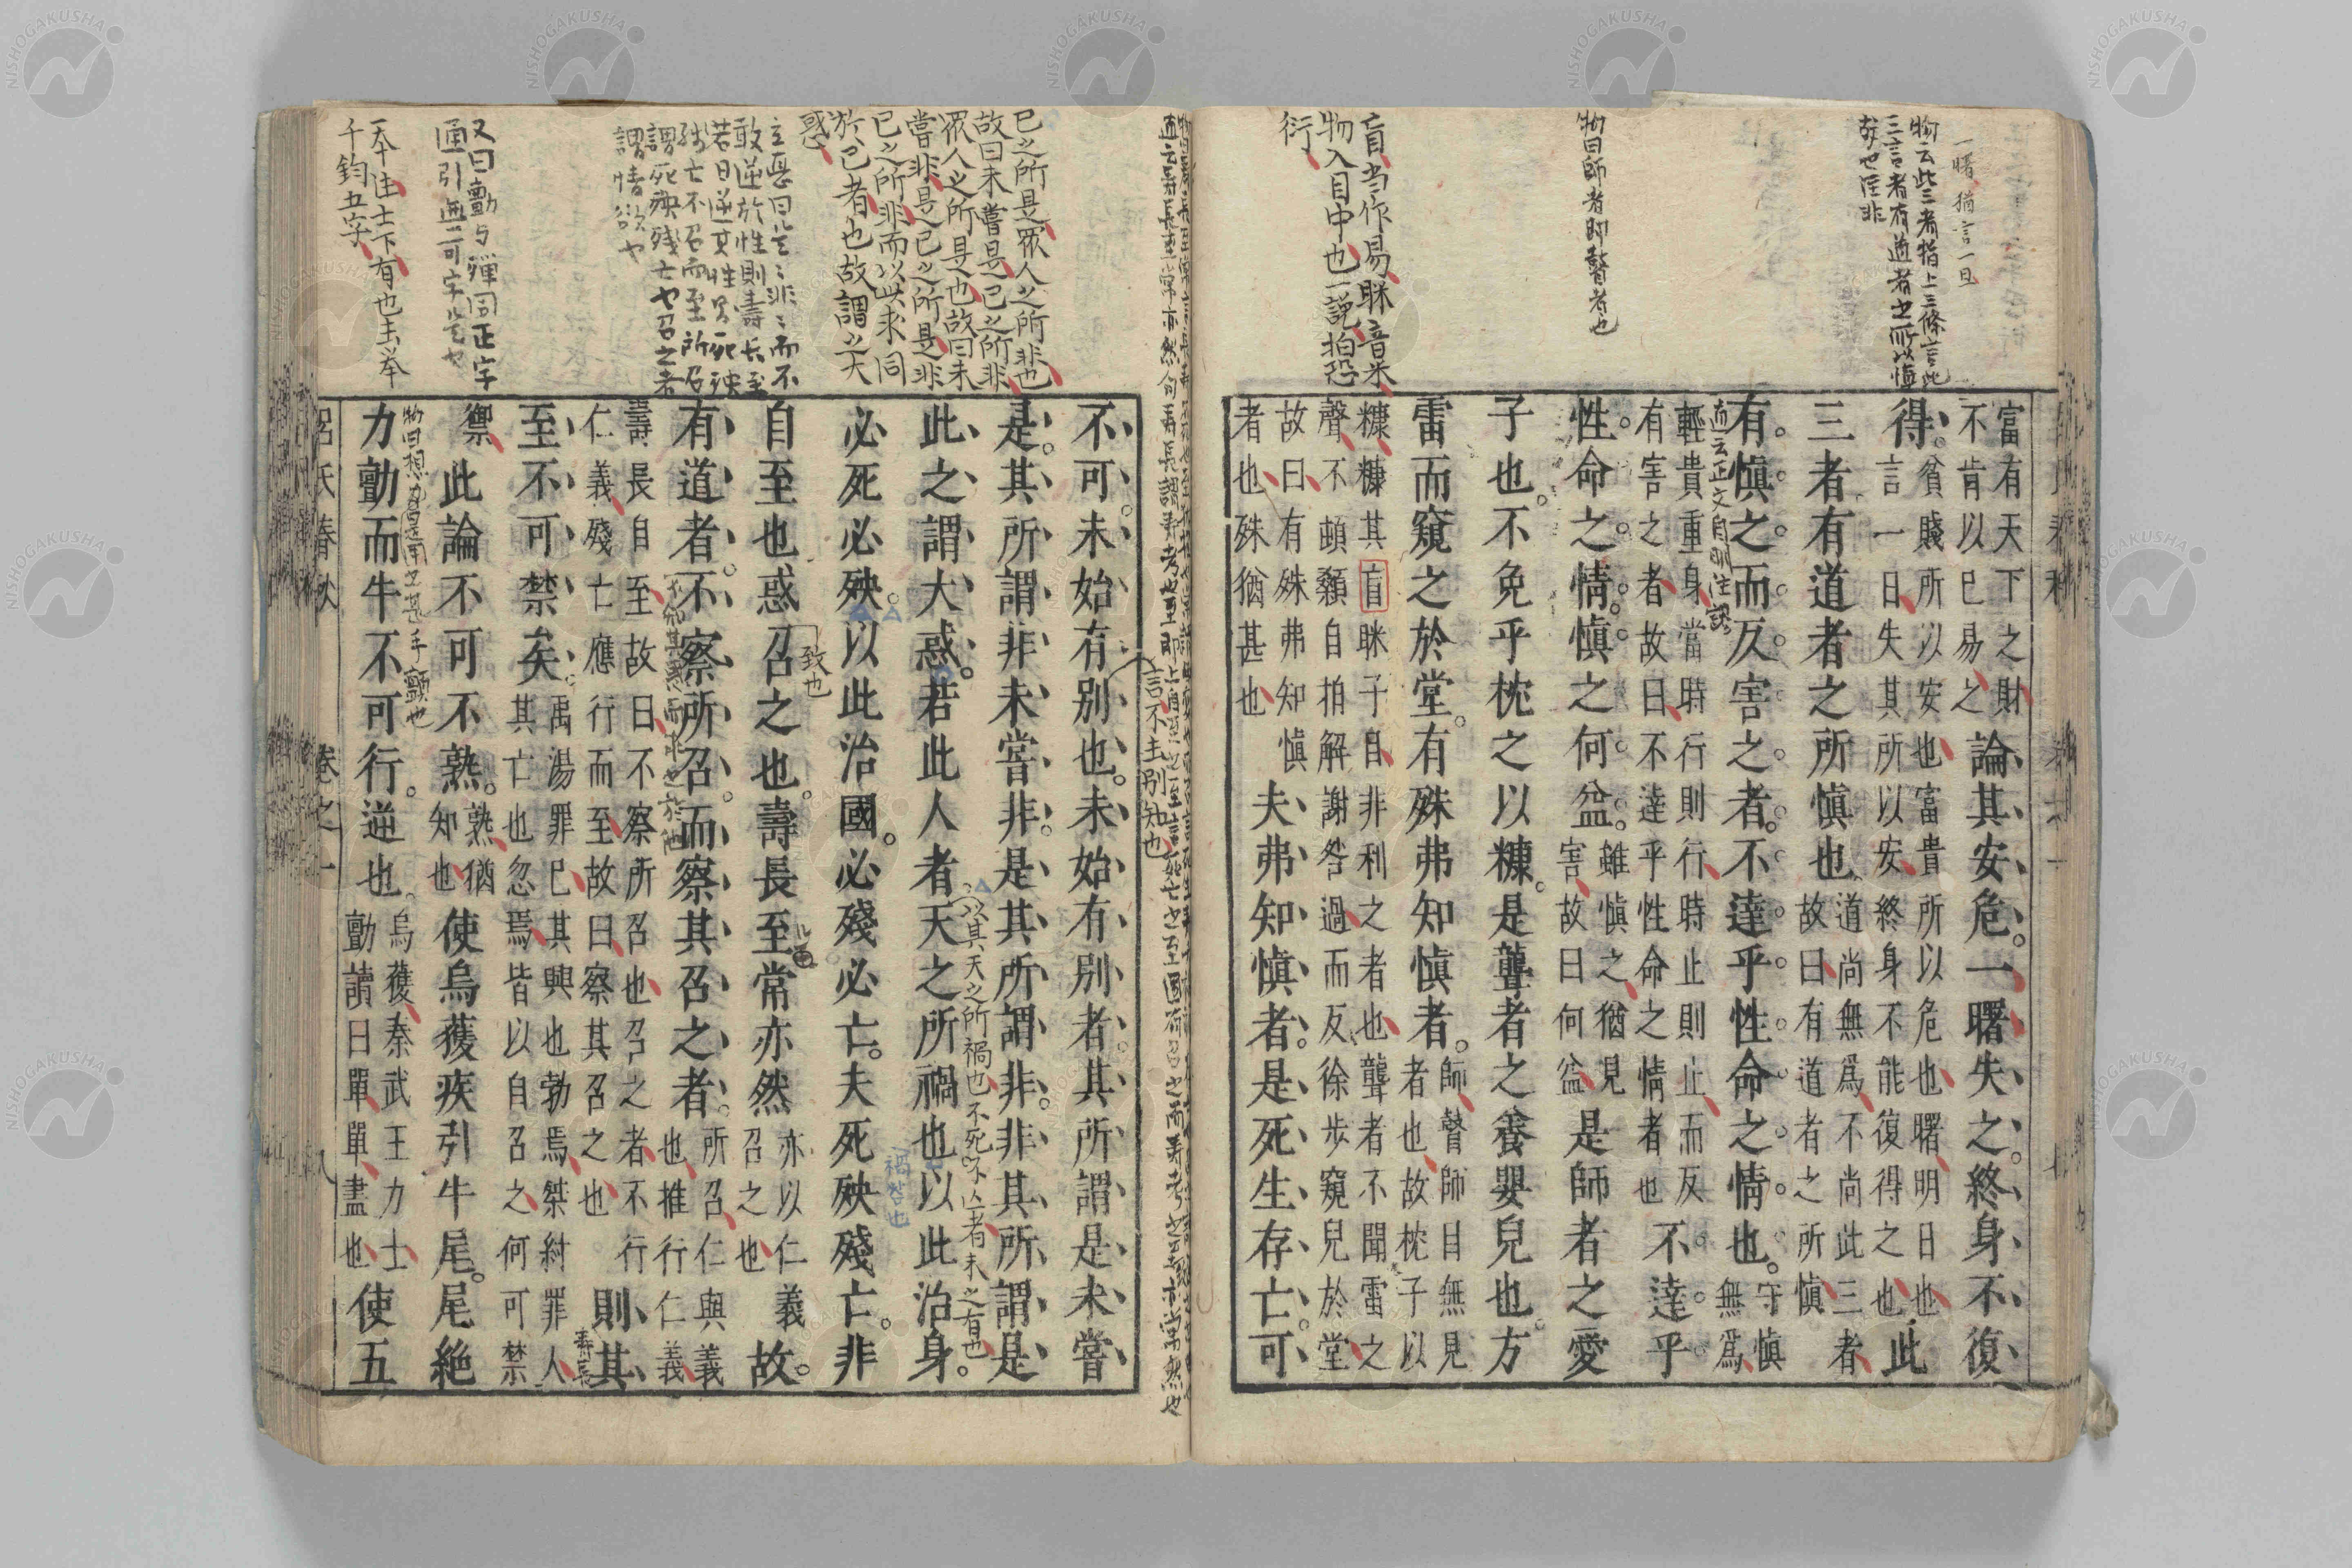 一曙猶言一旦
物云此三者指上三條言此
三言者有道者之所以慎
故也注非
物曰師者即瞽者也
盲当作易眯音米
物入目中也一說拍恐
衍
富有天下之財
不肯以已易之
論其安危。一曙失之。終身不復
得。
貧賤所以安也富貴所以危也曙明日也
言一日失其所以安終身不能復得之也
此
三者有道者之所慎也
道尚無爲不尚此三者
故曰有道者之所慎
有慎之而反害之者。不達乎性命之情也。
守慎
無爲
直云正文自明注謬
輕貴重身當時行則行時止則止而反
有害之者故曰不達乎性命之情者也
不達乎
性命之情。慎之何益。
雖慎之猶見
害故曰何益
是師者之愛
子也。不免乎枕之以糠。是聾者之養嬰兒也。方
雷而窺之於堂。有殊弗知慎者。
師瞽師目無見
者也故枕子以
糠糠其盲眯子目非利之者也聾者不聞雷之
聲不頔顙自拍解謝咎過而反徐步窺兒於堂
故曰有殊弗知慎
者也殊猶甚也
夫弗知慎者。是死生存亡。可
已之所是衆人之所非也
故曰未嘗是已之所非
衆人之所是也故曰未
嘗非是已之所是非
已之所非而以此求同
於已者也故謂之大
惑
主惡曰是是非非而不
敢逆於性則壽長至
若日逆其性則死殃
殘亡不召而至所召
謂死殃殘亡也召之者
謂情欲也
又曰勯与殫同正字
通引無二可字是也
一本注士下有也去举
千鈞五字
言不主別知也
不可。未始有别也。未始有别者。其所謂是未嘗
是。其所謂非未嘗非。是其所謂非。非其所謂是
以其天之所禍也不死不亡者未之有也
此之謂大惑。若此人者天之所禍也以此治身。
禍咎也
必死必殃。以此治國。必殘必亡。夫死殃殘亡。非
致也
自至也惑召之也。壽長至常亦然
亦以仁義
召之也
故。
有道者。不察所召。而察其召之者。
所召仁與義
也推行仁義
不知其惑而求之於他
壽長自至故曰不察所召也召之者不行
仁義殘亡應行而至故曰察其召之也
則其
壽長
至不可禁矣。
禹湯罪已其興也勃焉桀紂罪人
其亡也忽焉皆以自召之何可禁
禦
此論不可不熟。
熟猶
知也
使烏獲疾引牛尾。尾絶
力勯而牛不可行。逆也。
烏獲秦武王力士
勯讀曰單單盡也
使五
呂氏春秋
卷之一
八